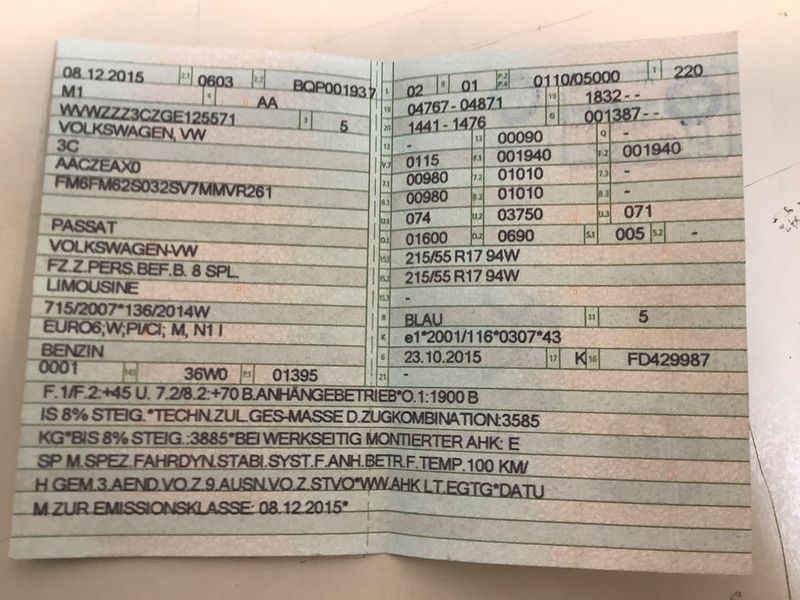 08.12.2015 2.1 0603 2.2 BQP001937
M1 4 AA
WVWZZZ3CZGE125571 3 5
VOLKSWAGEN, VW
3C
AACZEAX0
FM6FM62S032SV7MMVR261
PASSAT
VOLKSWAGEN-VW
FZ.Z.PERS.BEF.B. 8 SPL.
LIMOUSINE
715/2007*136/2014W
EURO6;W;PI/CI; M, N1 I
BENZIN
0001 14.1 36W0 P.1 01395
L 02 9 01 P.2 P.4 0110/05000 T 220
18 04767-04871 19 1832--
20 1441-1476 G 001387--
12 - 13 00090 Q -
V.7 0115 F.1 001940 F.2 001940
7.1 00980 7.2 01010 7.3 -
8.1 00980 8.2 01010 8.3 -
U.1 074 U.2 03750 U.3 071
O.1 01600 O.2 0690 S.1 005 S.2 -
15.1 215/55 R17 94W
15.2 215/55 R17 94W
15.3 -
R BLAU 11 5
K e1*2001/116*0307*43
6 23.10.2015 17 K 16 FD429987
21 -
F.1/F.2:+45 U. 7.2/8.2:+70 B.ANHÄNGEBETRIEB*O.1:1900 B
IS 8% STEIG.*TECHN.ZUL.GES-MASSE D.ZUGKOMBINATION:3585
KG*BIS 8% STEIG.:3885*BEI WERKSEITIG MONTIERTER AHK: E
SP M.SPEZ.FAHRDYN.STABI.SYST.F.ANH.BETR.F.TEMP.100 KM/
H GEM.3.AEND.VO.Z.9.AUSN.VO.Z.STVO*WW.AHK LT.EGTG*DATU
M ZUR EMISSIONKLASSE: 08.12.2015*